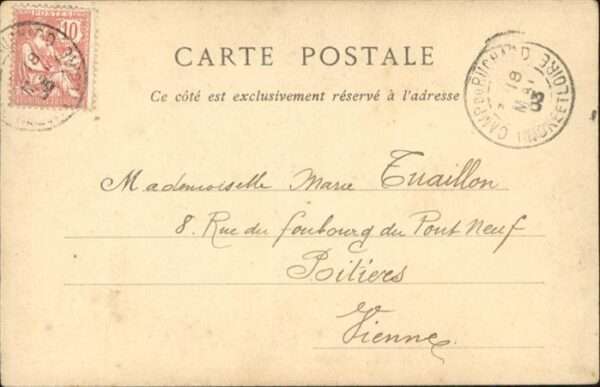 POSTES
10
CARTE POSTALE
Ce côté est exclusivement réservé à l'adresse
CAMP DU RUCHARD
18
MAI
03
INDRE ET LOIRE
Mademoiselle Marie Tuaillon
8. Rue du foubourg du Pont Neuf
Poitiers
Vienne